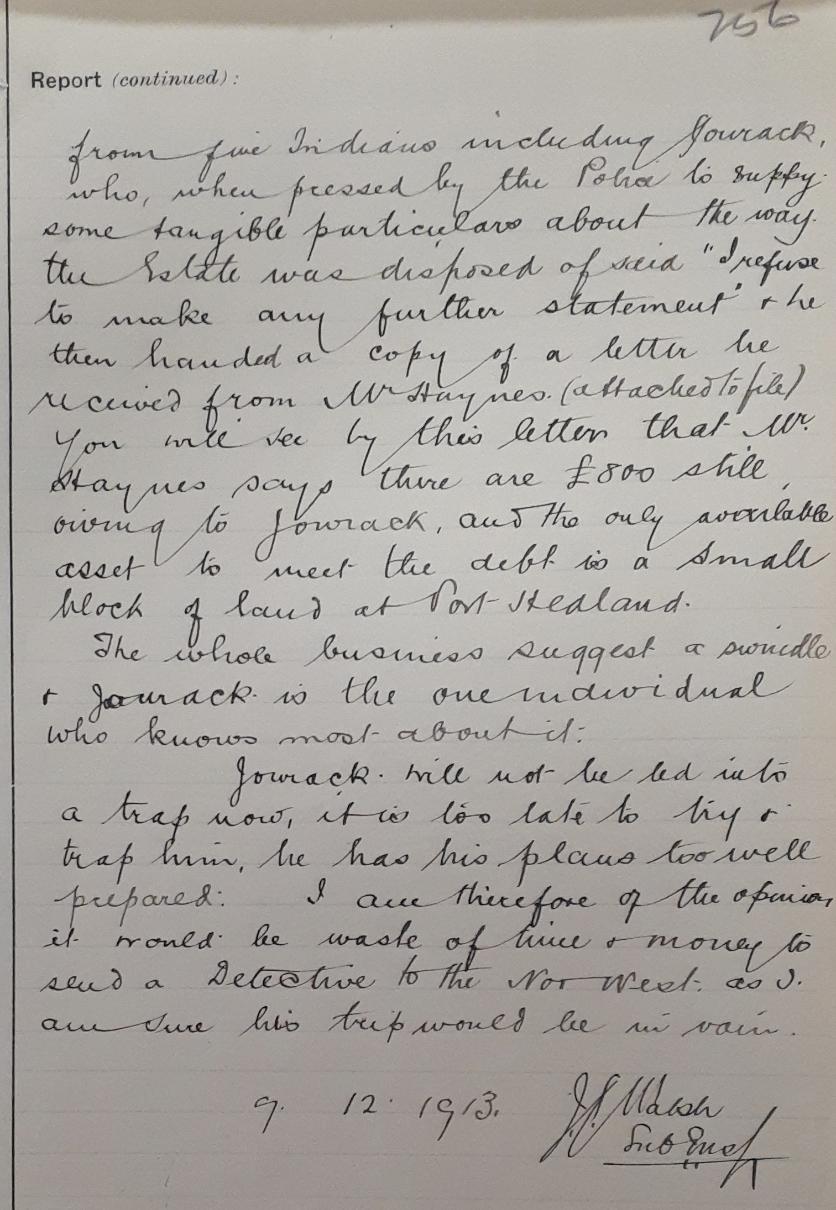 756
Report (continued):
from five Indians including Jowrack,
who, when pressed by the Police to supply
some tangible particulars about the way
the Estate was disposed of said "I refuse
to make any further statement" & he
then handed a copy of a letter he
received from Mr Haynes. (attached to file)
You will see by this letter that Mr.
Haynes says there are £800 still
owing to Jowrack, and the only available
asset to meet the debt is a small
block of land at Port Hedland.
The whole business suggest a swindle
& Jowrack is the one individual
who knows most about it.
Jowrack will not be led into
a trap now, it is too late to try &
trap him, he has his plans too well
prepared. I am therefore of the opinion
it would be waste of time & money to
send a Detective to the Nor West. as I
am sure his trip would be in vain.
9. 12. 1913. Walsh
Sub Insp